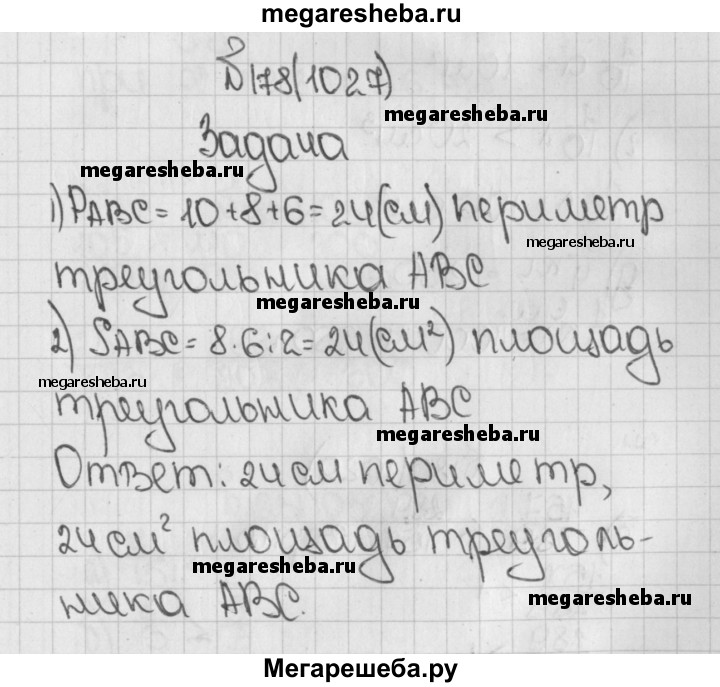 megaresheba.ru
№178(1027)
megaresheba.ru
Задача
megaresheba.ru
1) PABC = 10+8+6 = 24(см) периметр
megaresheba.ru
треугольника ABC
megaresheba.ru
2) SABC = 8·6:2 = 24(см²) площадь
megaresheba.ru
треугольника ABC
megaresheba.ru
Ответ: 24 см периметр,
24 см² площадь треуголь-
megaresheba.ru
ника ABC.
megaresheba.ru
Мегарешеба.ру